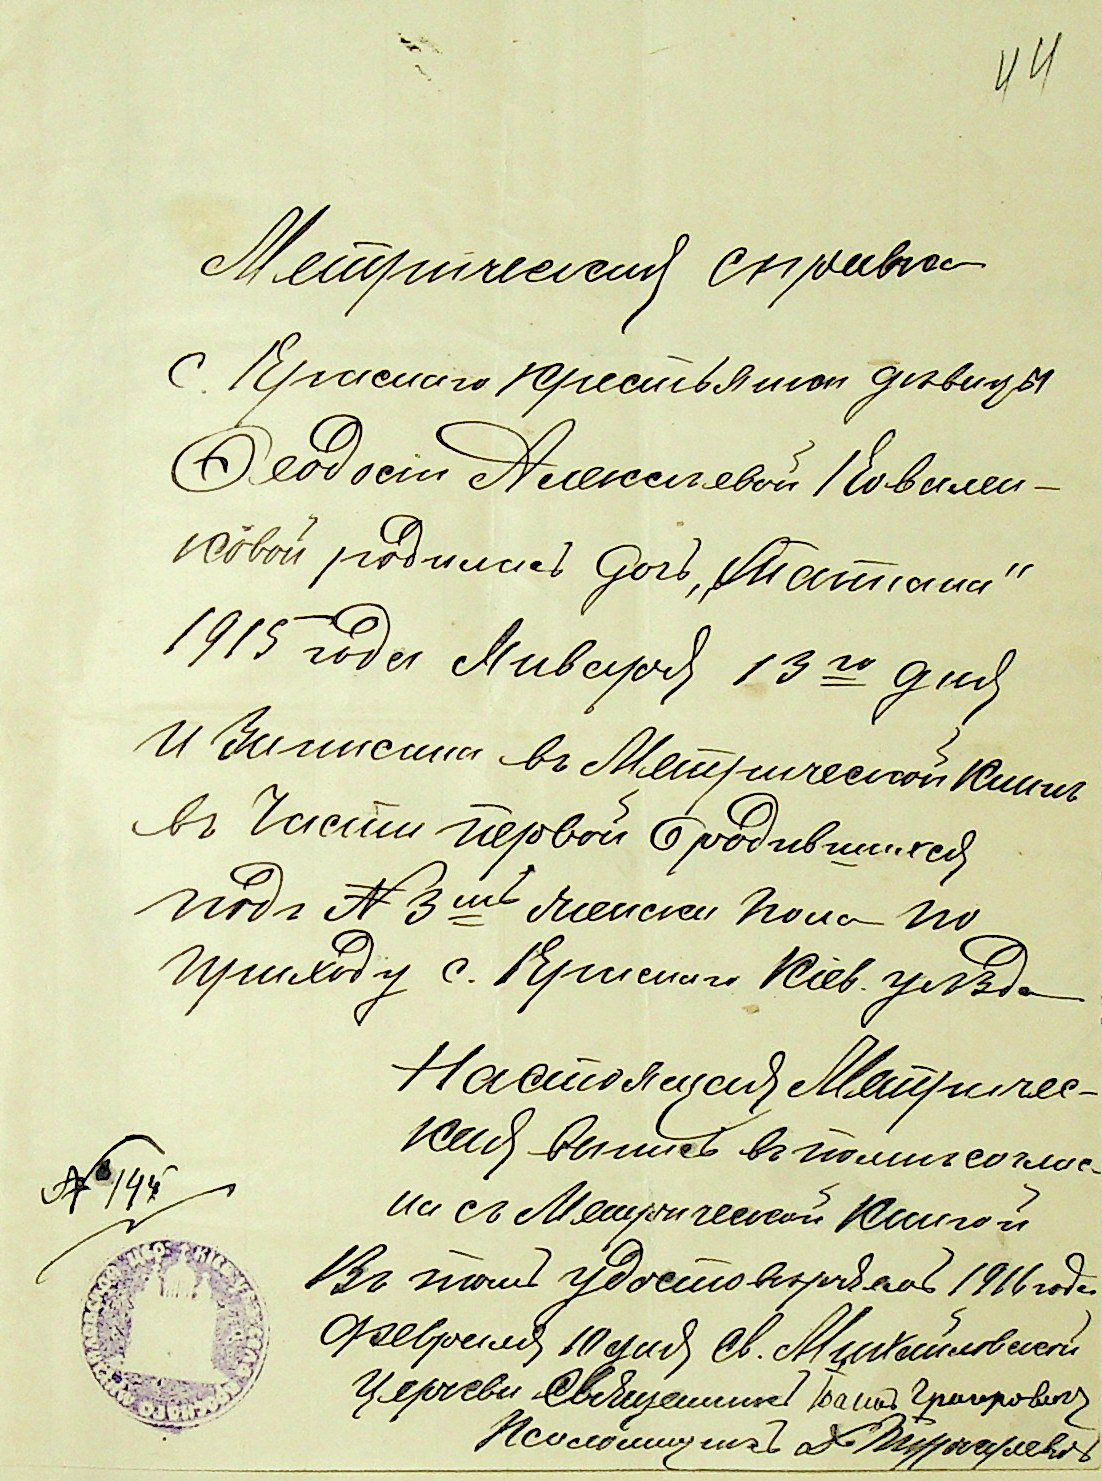 44
Метрическая справка
с. Краснаго крестьянки девицы
Ѳеодосіи Алексѣевой Ковален-
ковой родилась дочь „Татіана"
1915 года Января 13го дня
и записана въ Метрической книгѣ
въ Части первой о родившихся
подъ № 3мъ женска пола по
приходу с. Краснаго Кіев. уѣзда
Настоящая Метричес-
кая выпись въ томъ соглас-
на съ Метрической книгой
Въ томъ удостовѣряемъ 1916 года
Февраля 10 дня Св. Михайловской
№ 144
Церкви Священникъ Іоаннъ Григорович
Псаломщикъ